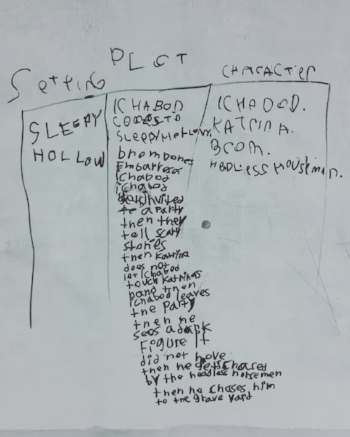 Setting
PLOT
CHARACTER
SLEEPY
HOLLOW
ICHABOD
COMES TO
SLEEPY HOLLOW
brombones
Embarress
Ichabod
ichabod
invited
to a Party
then they
tell scary
stories
then Katrina
does not
let Ichabod
touch Katrinas
hand then
ichabod leaves
the Party
then he
sees a dark
Figure It
did not move
then he gets chased
by the headless horsemen
then he chases him
to the grave yard
ICHABOD.
KATRINA.
BROM.